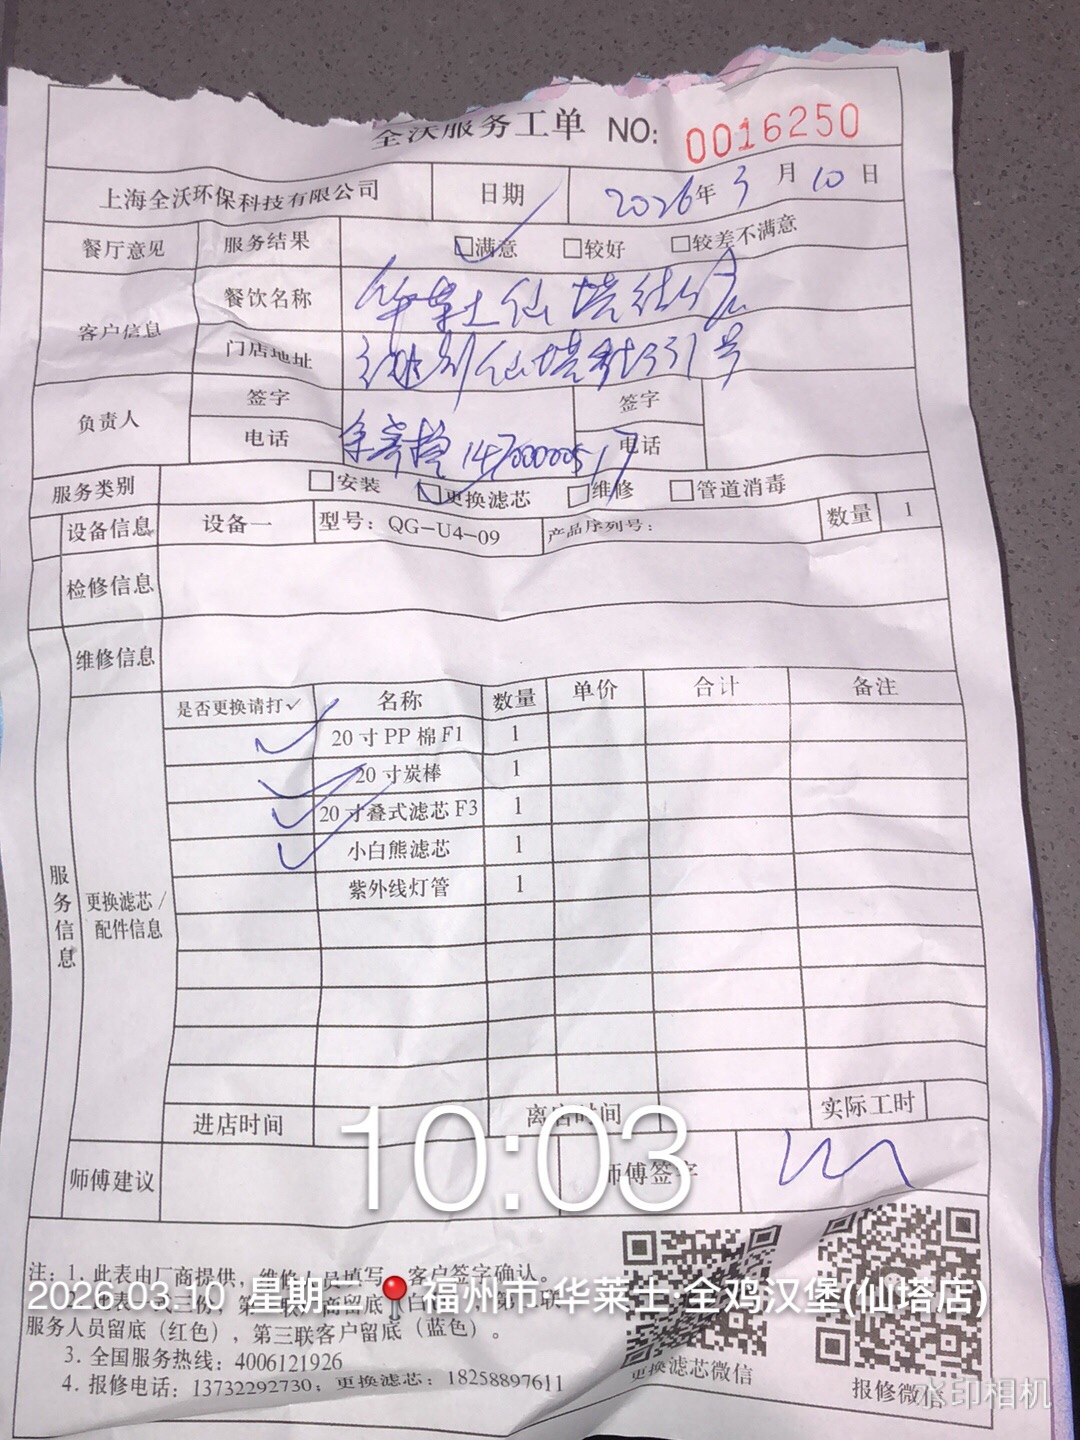 全沃服务工单 NO: 0016250
上海全沃环保科技有限公司 日期 2026年 3月 10日
餐厅意见 服务结果 □满意 □较好 □较差不满意
客户信息 餐饮名称 华莱士仙塔街店
门店地址 仙塔街331号
负责人 签字 签字
电话 电话
服务类别 □安装 □更换滤芯 □维修 □管道消毒
设备信息 设备一 型号: QG-U4-09 产品序列号: 数量 1
检修信息
维修信息
服务信息
更换滤芯/配件信息
是否更换请打✓ 名称 数量 单价 合计 备注
✓ 20寸PP棉F1 1
✓ 20寸炭棒 1
✓ 20寸叠式滤芯F3 1
✓ 小白熊滤芯 1
紫外线灯管 1
进店时间 离店时间 实际工时
10:03
师傅建议 师傅签字
注: 1. 此表由厂商提供, 维修人员填写, 客户签字确认。
2026.03.10 星期 福州市·华莱士·全鸡汉堡(仙塔店)
服务人员留底(红色), 第三联客户留底(蓝色)。
3. 全国服务热线: 4006121926
4. 报修电话: 13732292730; 更换滤芯: 18258897611
更换滤芯微信
报修微信
水印相机